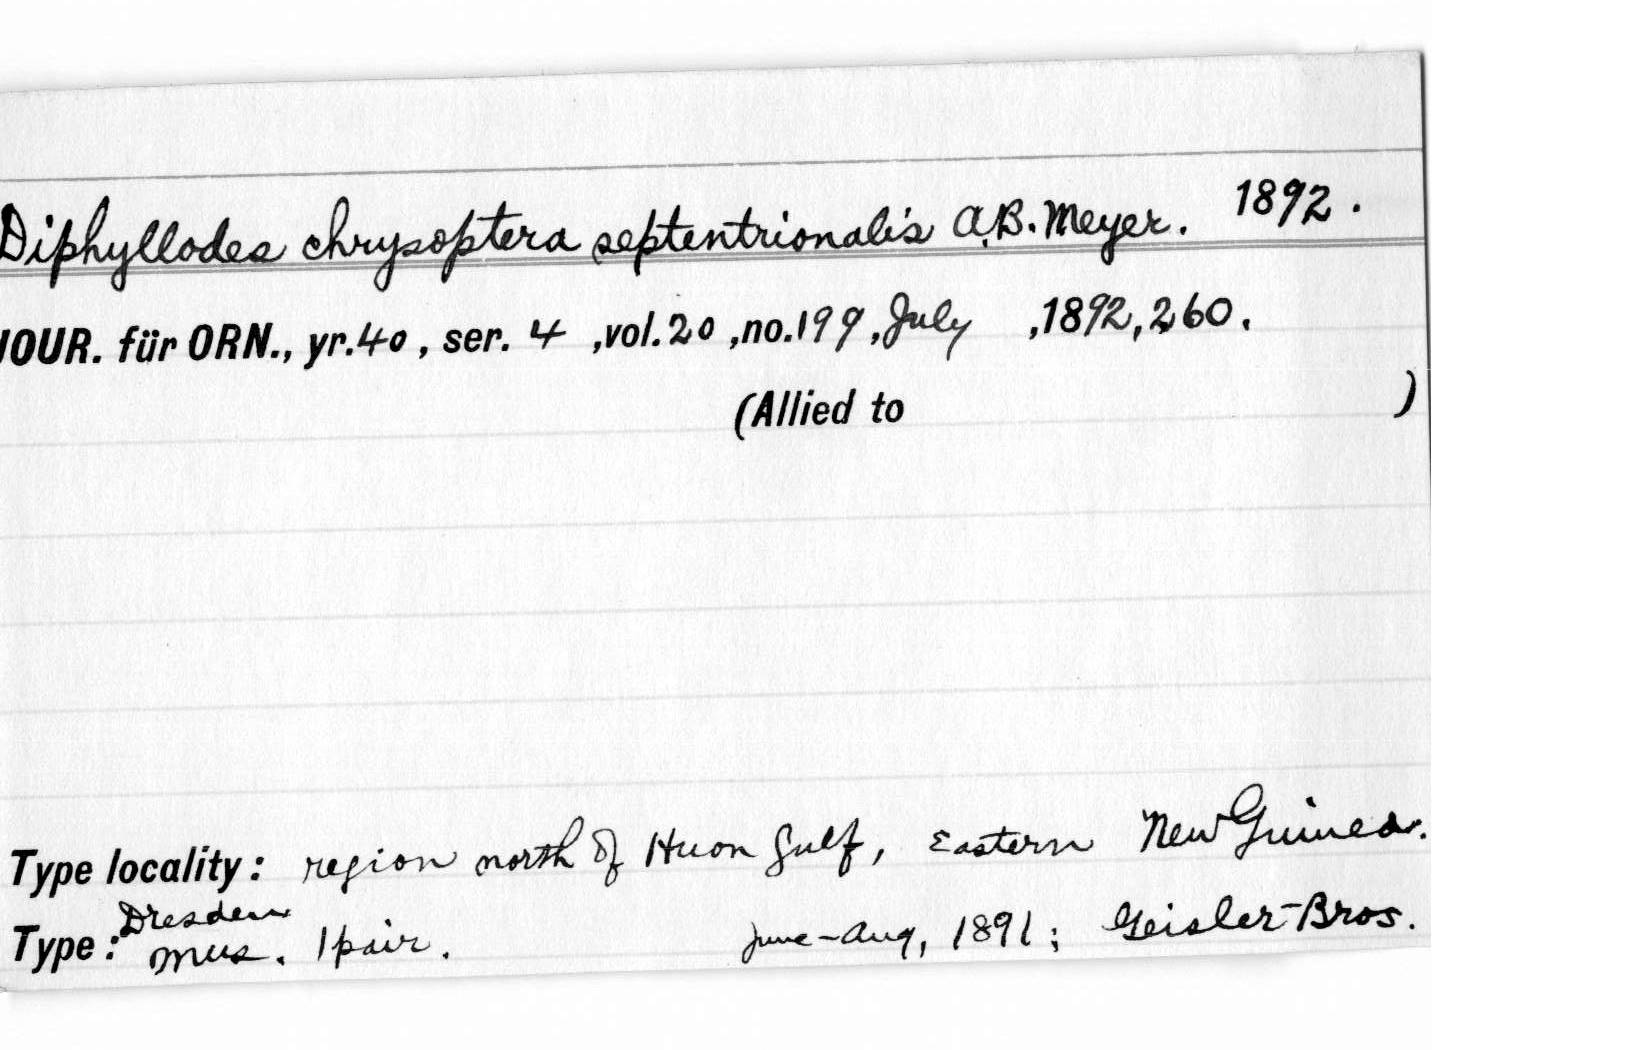 Diphyllodes chrysoptera septentrionalis A.B. Meyer. 1892.
JOUR. für ORN., yr. 40, ser. 4, vol. 20, no. 199, July, 1892, 260.
(Allied to )
Type locality: region north of Huon Gulf, Eastern New Guinea.
Type: Dresden Mus. 1 pair. June-Aug, 1891; Geisler Bros.